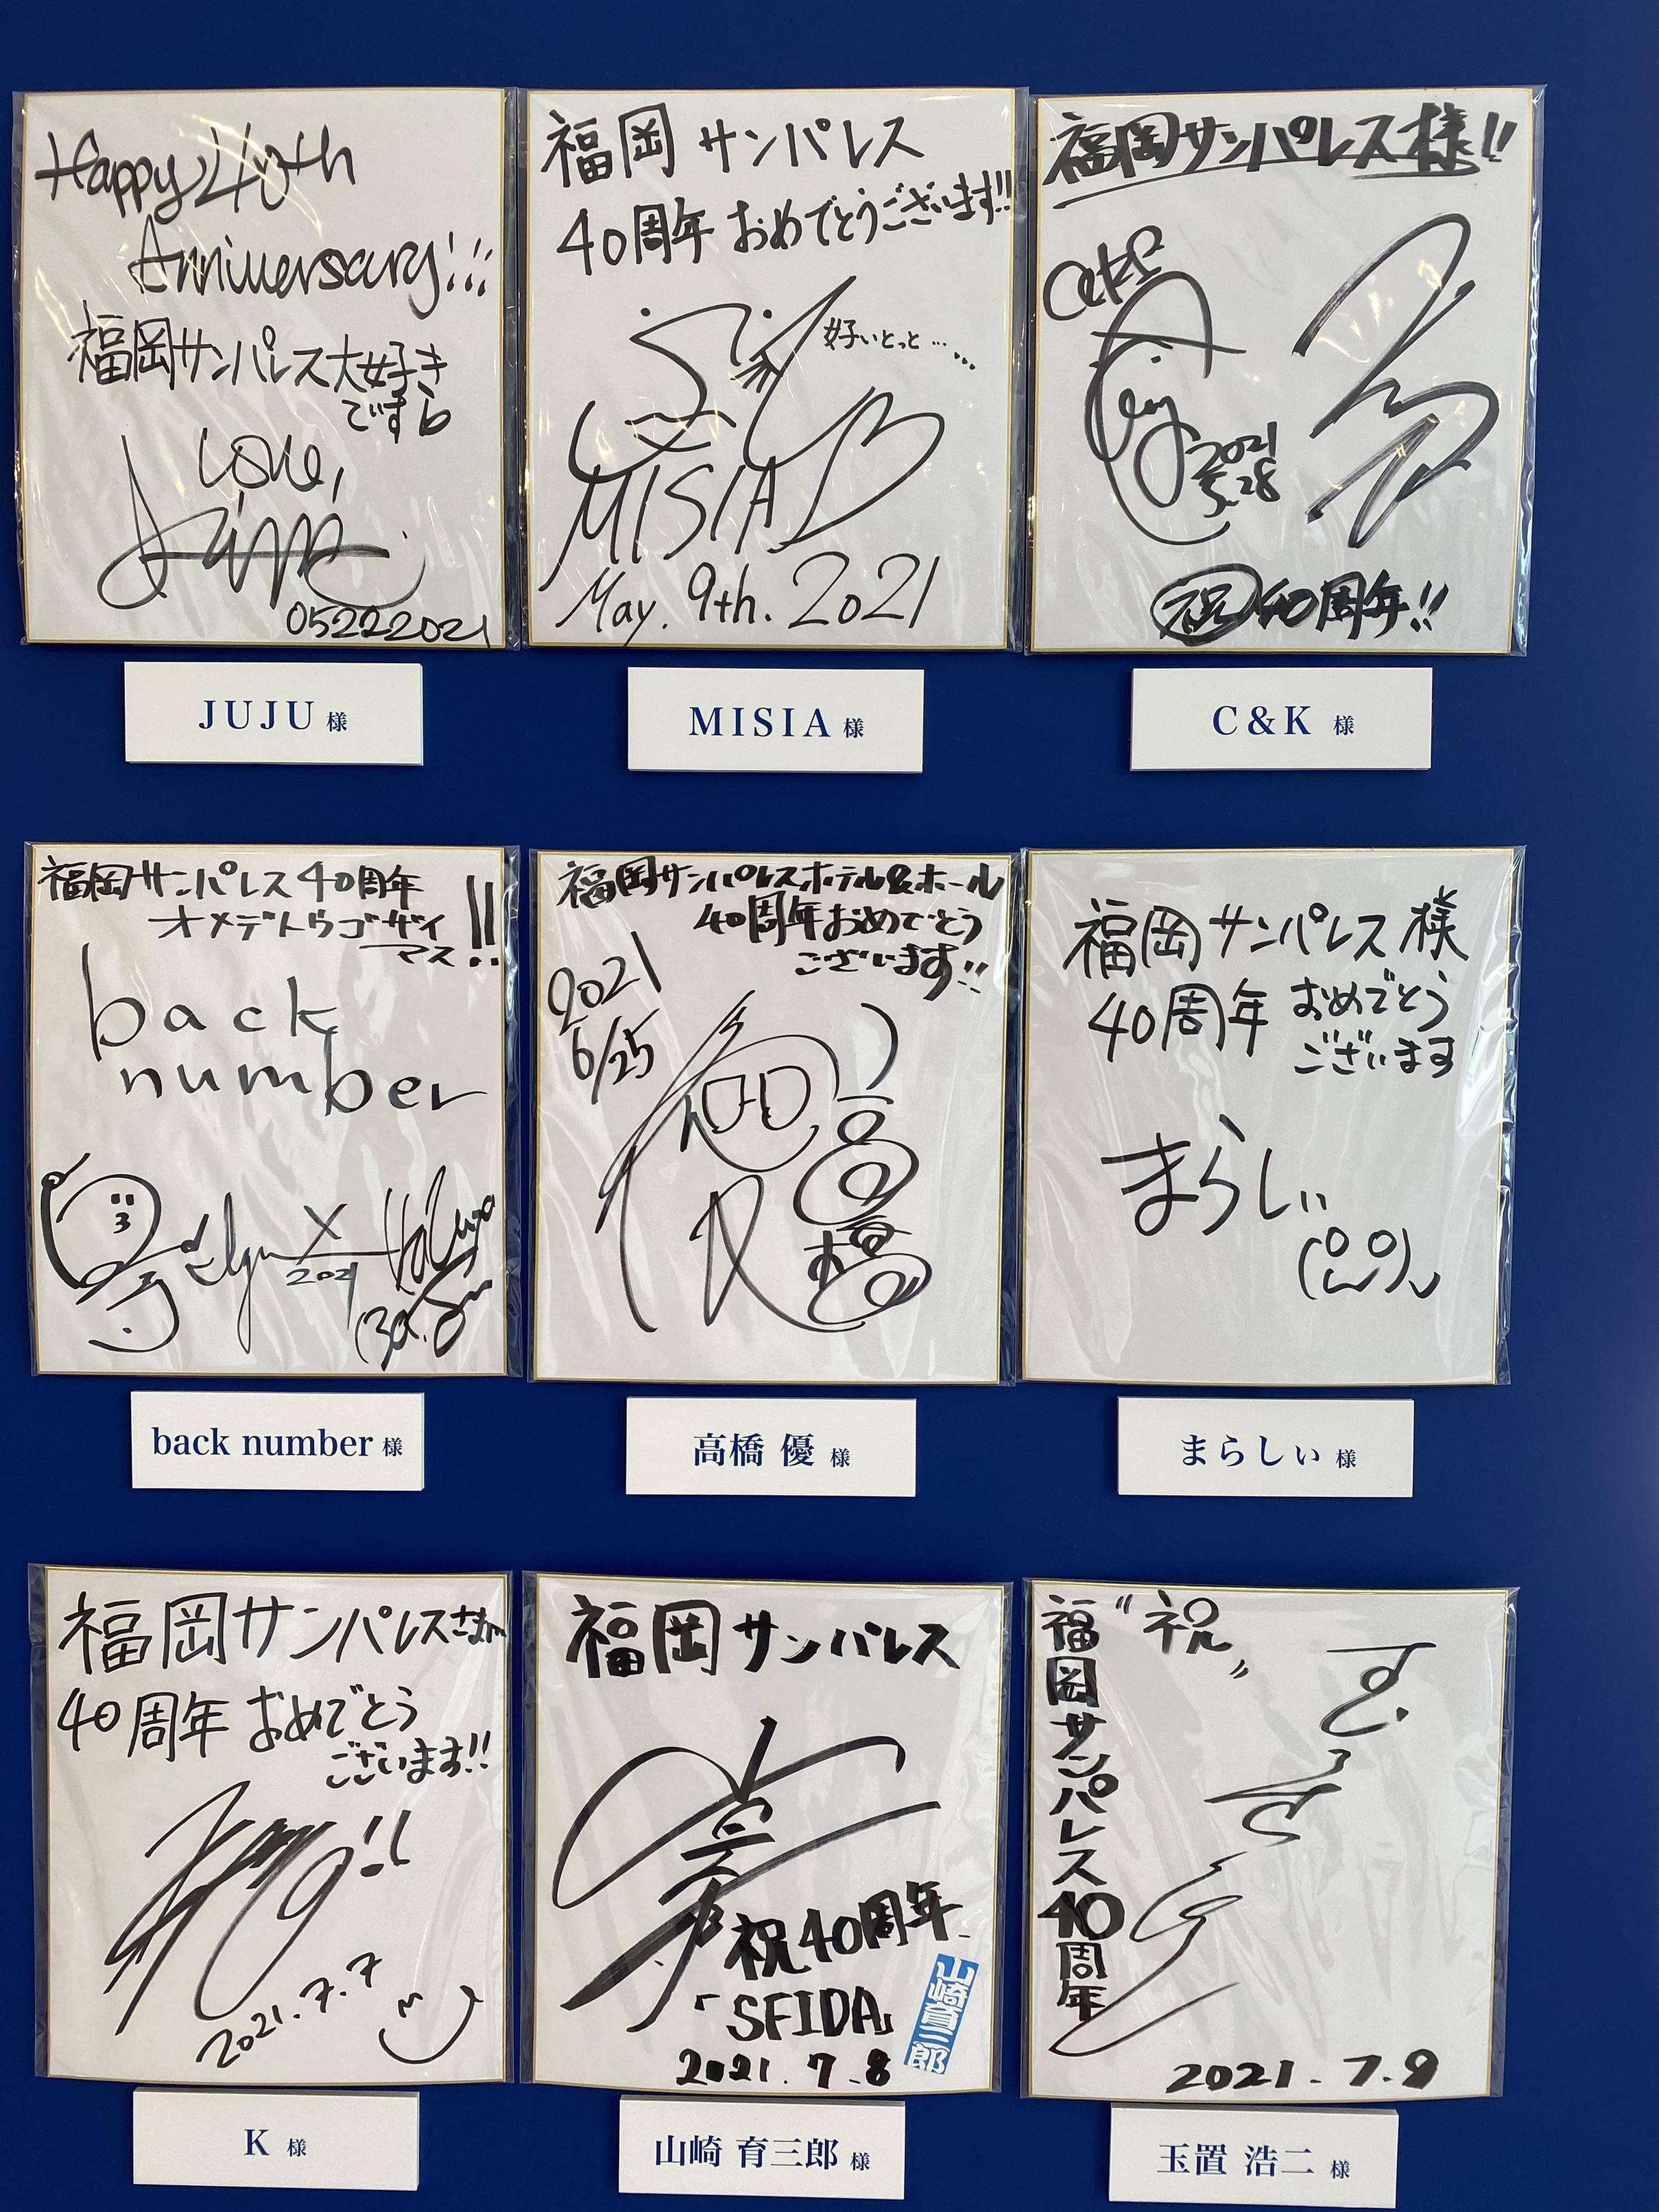 Happy 40th
Anniversary!!!
福岡サンパレス大好き
です
Love,
05222021
JUJU 様
福岡サンパレス
40周年おめでとうございます!!
好いとっと……
MISIA
May. 9th. 2021
MISIA 様
福岡サンパレス様!!
2021
5.28
祝40周年!!
C&K 様
福岡サンパレス40周年
オメデトウゴザイ
マス!!
back
number
2021
back number 様
福岡サンパレスホテル&ホール
40周年おめでとう
ございます!!
2021
6/25
高橋 優 様
福岡サンパレス様
40周年おめでとう
ございます
まらしぃ
まらしぃ 様
福岡サンパレスさま
40周年おめでとう
ございます!!
2021.7.7
K 様
福岡サンパレス
祝40周年
「SFIDA」
2021.7.8
山崎育三郎
山崎 育三郎 様
"祝"
福岡サンパレス40周年
2021.7.9
玉置 浩二 様